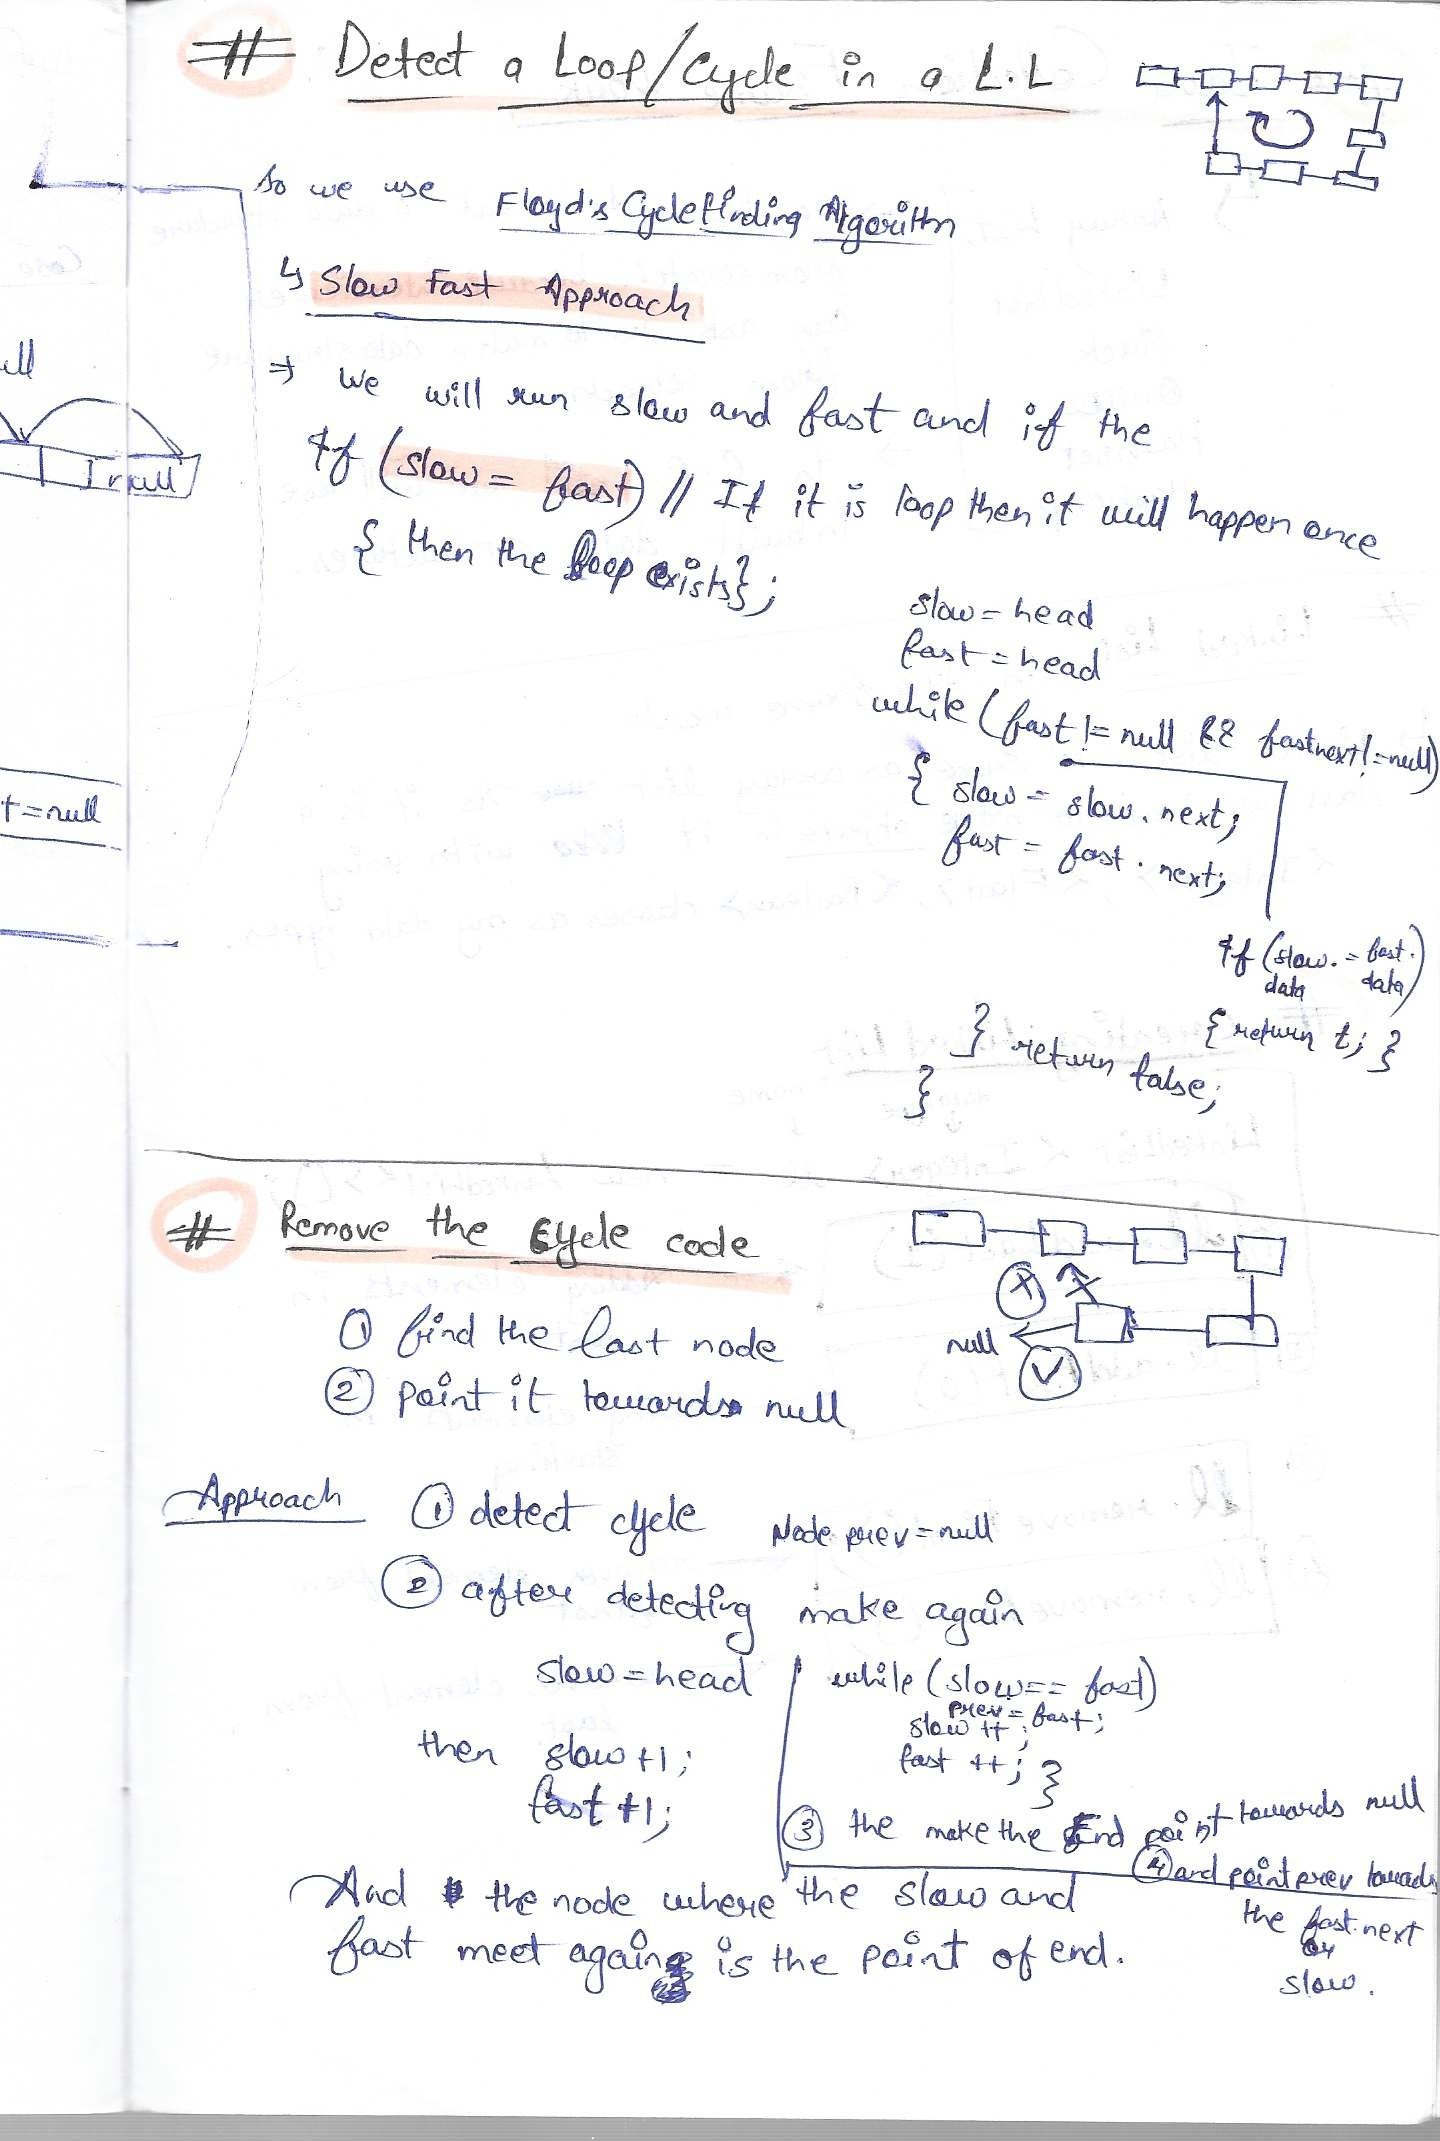 # Detect a Loop/Cycle in a L.L
So we use Floyd's Cycle finding Algorithm
↳ Slow Fast Approach
⇒ We will run slow and fast and if the
If (slow = fast) // If it is loop then it will happen once
{ then the loop exists};
slow = head
fast = head
while (fast != null && fastnext!=null)
{ slow = slow.next;
fast = fast.next;
If (slow. = fast.)
data data
{ return t; }
} return false;
}
ull
null
t=null
# Remove the Cycle code
① find the last node
② point it towards null
null
Approach ① detect cycle Node prev = null
② after detecting make again
slow = head
then slow +1;
fast +1;
while (slow == fast)
prev = fast;
slow ++;
fast ++; }
③ the make the End point towards null
④ and point prev towards
the fast.next
or
slow.
And the node where the slow and
fast meet again is the point of end.